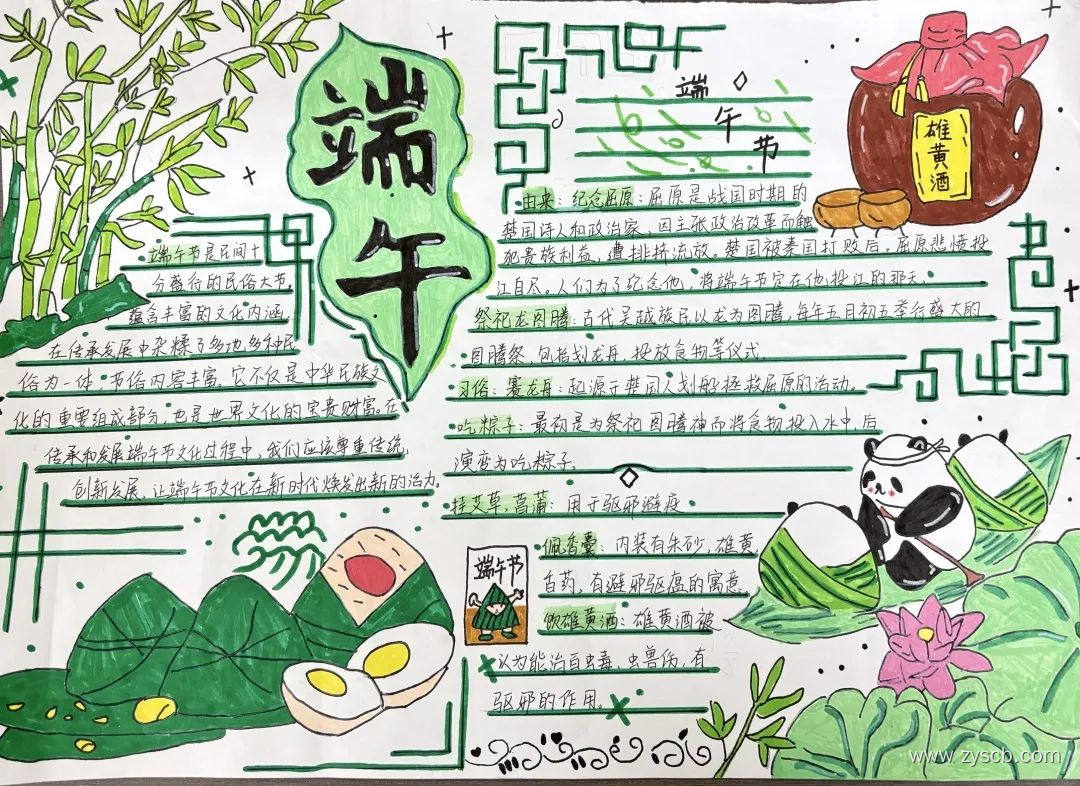 端午
端午节是民间十
分盛行的民俗大节,
蕴含丰富的文化内涵,
在传承发展中杂糅了多功,多种民
俗为一体,节俗内容丰富。它不仅是中华民族文
化的重要组成部分,也是世界文化的宝贵财富。在
传承和发展端午节文化过程中,我们应该尊重传统,
创新发展,让端午节文化在新时代焕发出新的活力。
端午节
由来:纪念屈原:屈原是战国时期的
楚国诗人和政治家,因主张政治改革而触
犯贵族利益,遭排挤流放。楚国被秦国打败后,屈原悲愤投
江自尽。人们为了纪念他,将端午节定在他投江的那天.
祭祀龙图腾:古代吴越族民以龙为图腾,每年五月初五举行盛大的
图腾祭,包括划龙舟,投放食物等仪式.
习俗:赛龙舟:起源于楚国人划船拯救屈原的活动。
吃粽子:最初是为祭祀图腾神而将食物投入水中,后
演变为吃粽子.
挂艾草,菖蒲:用于驱邪避疫
佩香囊:内装有朱砂,雄黄,
香药,有避邪驱瘟的寓意.
饮雄黄酒:雄黄酒被
认为能治百虫毒,虫兽伤,有
驱邪的作用。
雄黄酒
端午节
www.zyscb.com